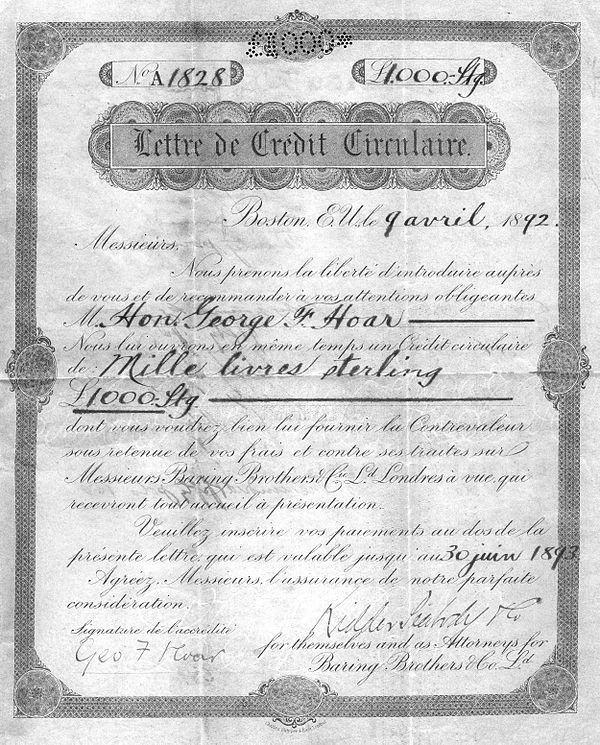 £1000*
No. A1828
£1000.Stg.
Lettre de Crédit Circulaire.
Boston, E.U., le 9 avril, 1892.
Messieurs,
Nous prenons la liberté d'introduire auprès
de vous et de recommander à vos attentions obligeantes
M. Hon. George F. Hoar
Nous lui ouvrons en même temps un Crédit circulaire
de: Mille livres sterling
£1000.Stg
dont vous voudrez bien lui fournir la Contrevaleur
sous retenue de vos frais et contre ses traites sur
Messieurs Baring Brothers & Cie. Ld. Londres à vue, qui
recevront tout accueil à présentation.
Veuillez inscrire vos paiements au dos de la
présente lettre, qui est valable jusqu'au 30 juin 1893
Agréez, Messieurs, l'assurance de notre parfaite
considération.
Kidder Peabody & Co
Signature de l'accrédité
Geo F Hoar
for themselves and as Attorneys for
Baring Brothers & Co. Ld.